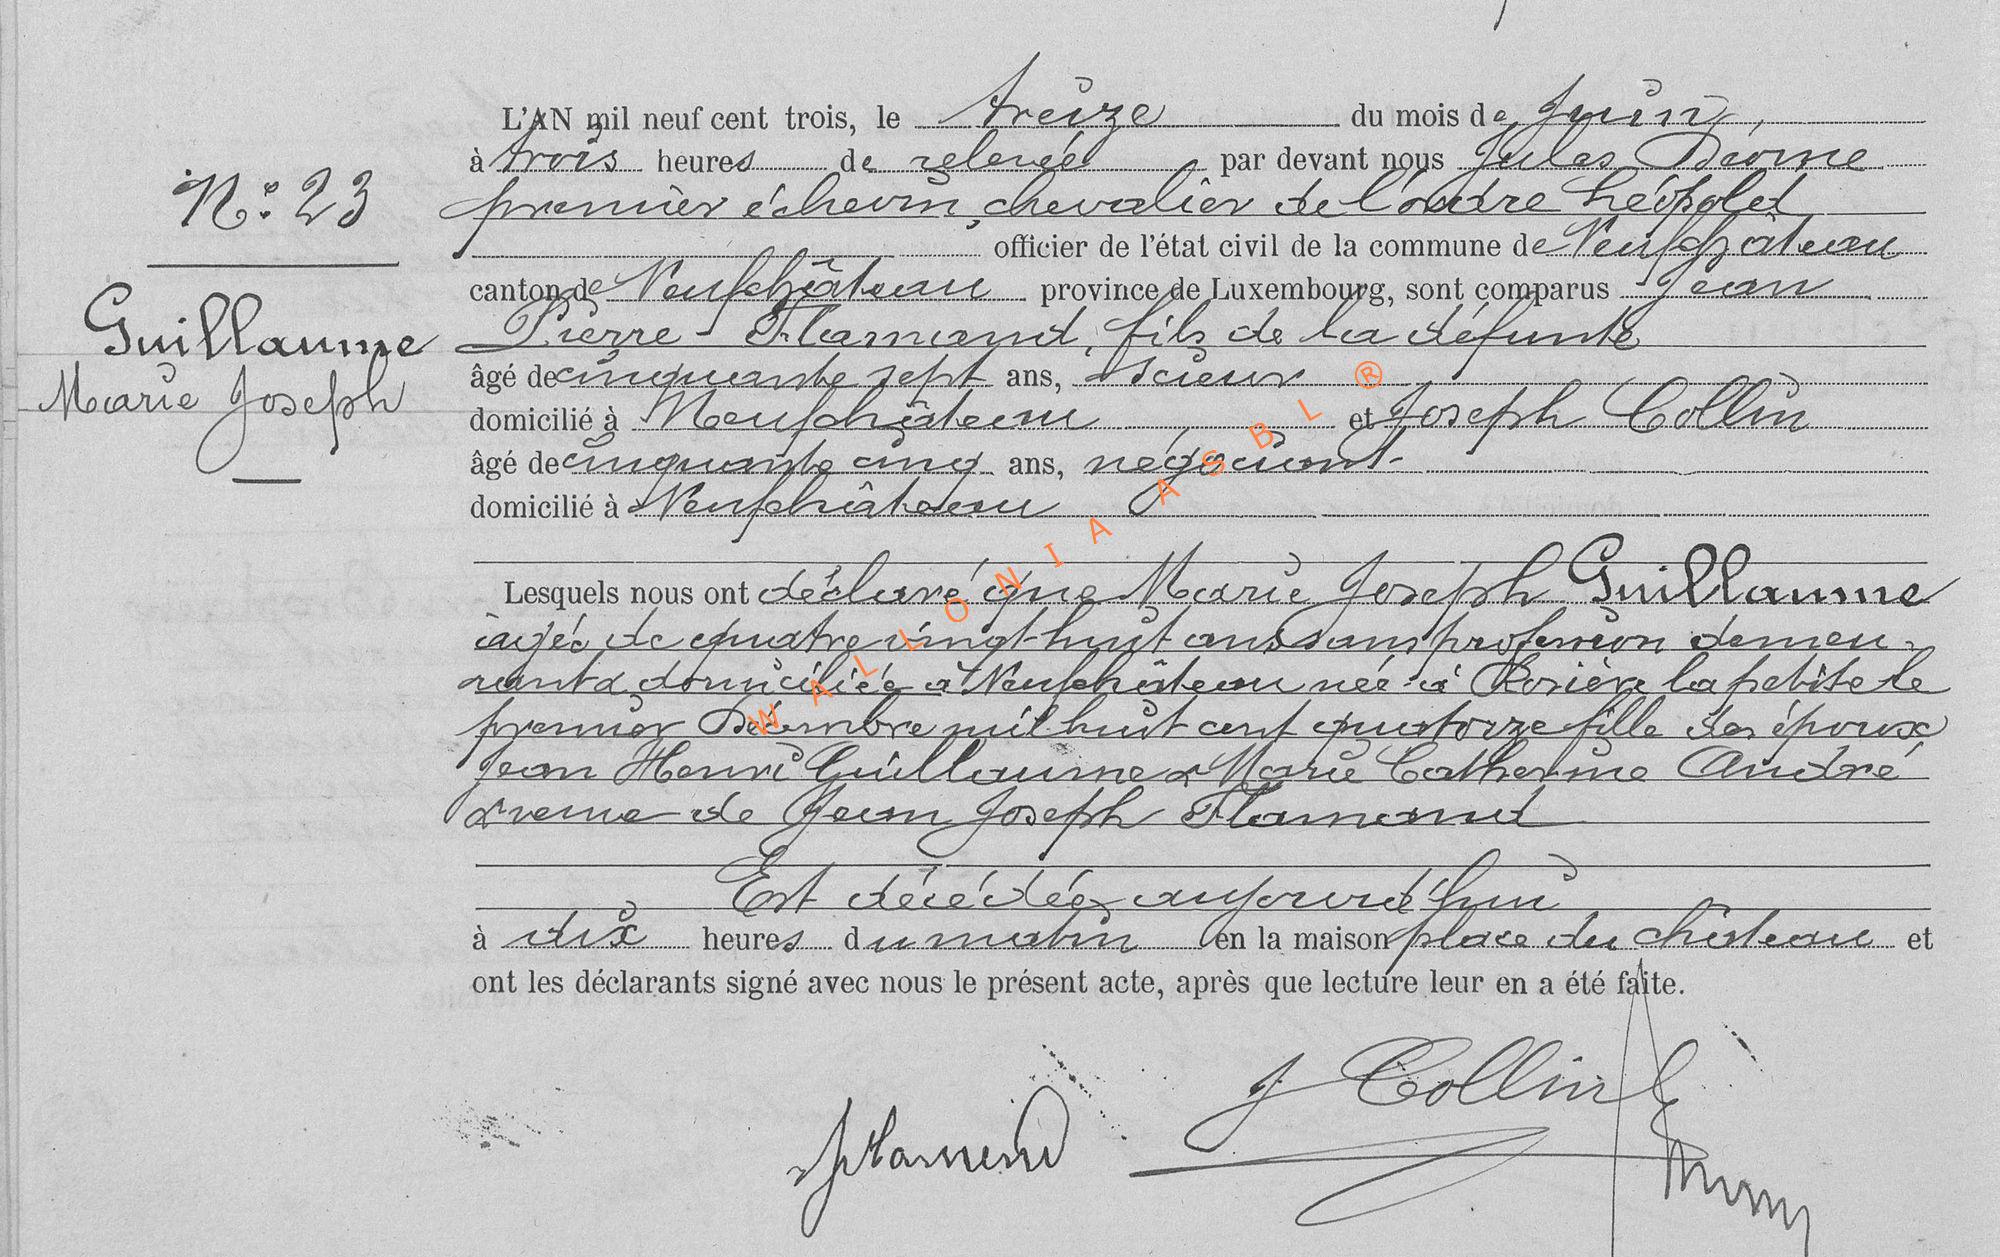 L'AN mil neuf cent trois, le treize du mois de Juin,
à trois heures de relevée par devant nous Jules
N° 23
premier échevin, chevalier de l'ordre Léopold
officier de l'état civil de la commune de Neufchâteau
canton de Neufchâteau province de Luxembourg, sont comparus Jean
Guillaume
Pierre Flamand, fils de la défunte
âgé de cinquante sept ans, scieur
Marie Joseph
domicilié à Neufchâteau et Joseph Collin
âgé de cinquante cinq ans, négociant
domicilié à Neufchâteau
Lesquels nous ont déclaré que Marie Joseph Guillaume
âgée de quatre vingt-huit ans sans profession demeu-
rant & domiciliée à Neufchâteau née à Rosière la petite le
premier Décembre mil huit cent quatorze fille des époux
Jean Henri Guillaume & Marie Catherine André
& veuve de Jean Joseph Flamand
Est décédée aujourd'hui
à dix heures du matin en la maison place du château et
ont les déclarants signé avec nous le présent acte, après que lecture leur en a été faite.
J Collin
Flamand
WALLONIA ASBL ®